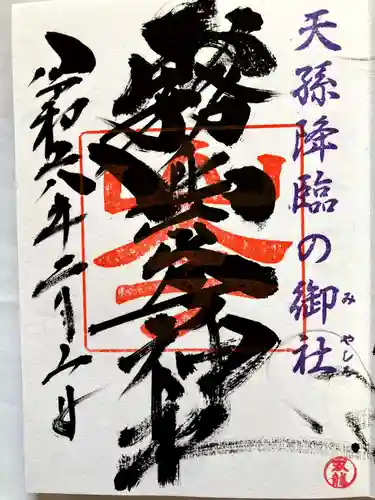 天孫降臨の御社
みやしろ
霧島岑神社
令和 年二月 日